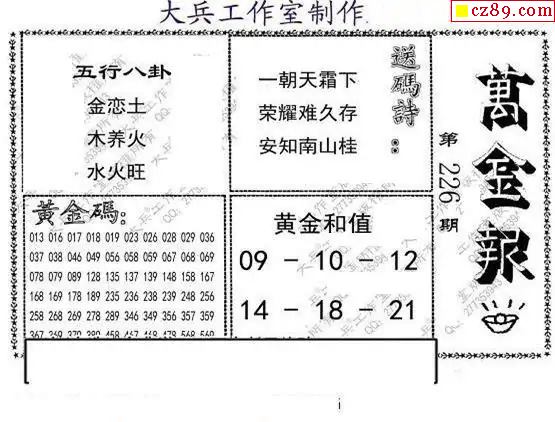 大兵工作室制作
cz89.com
五行八卦
金恋土
木养火
水火旺
送碼詩：
一朝天霜下
荣耀难久存
安知南山桂
萬金報
第226期
黃金碼：
013 016 017 018 019 023 026 028 029 036
037 038 046 049 056 058 059 067 068 069
078 079 089 128 135 137 145 147 156 157
168 169 178 189 235 236 238 239 245 256
258 268 269 278 289 345 347 356 357 359
367 369 379 389 447 456 467 468 568 569
黄金和值
09 － 10 － 12
14 － 18 － 21